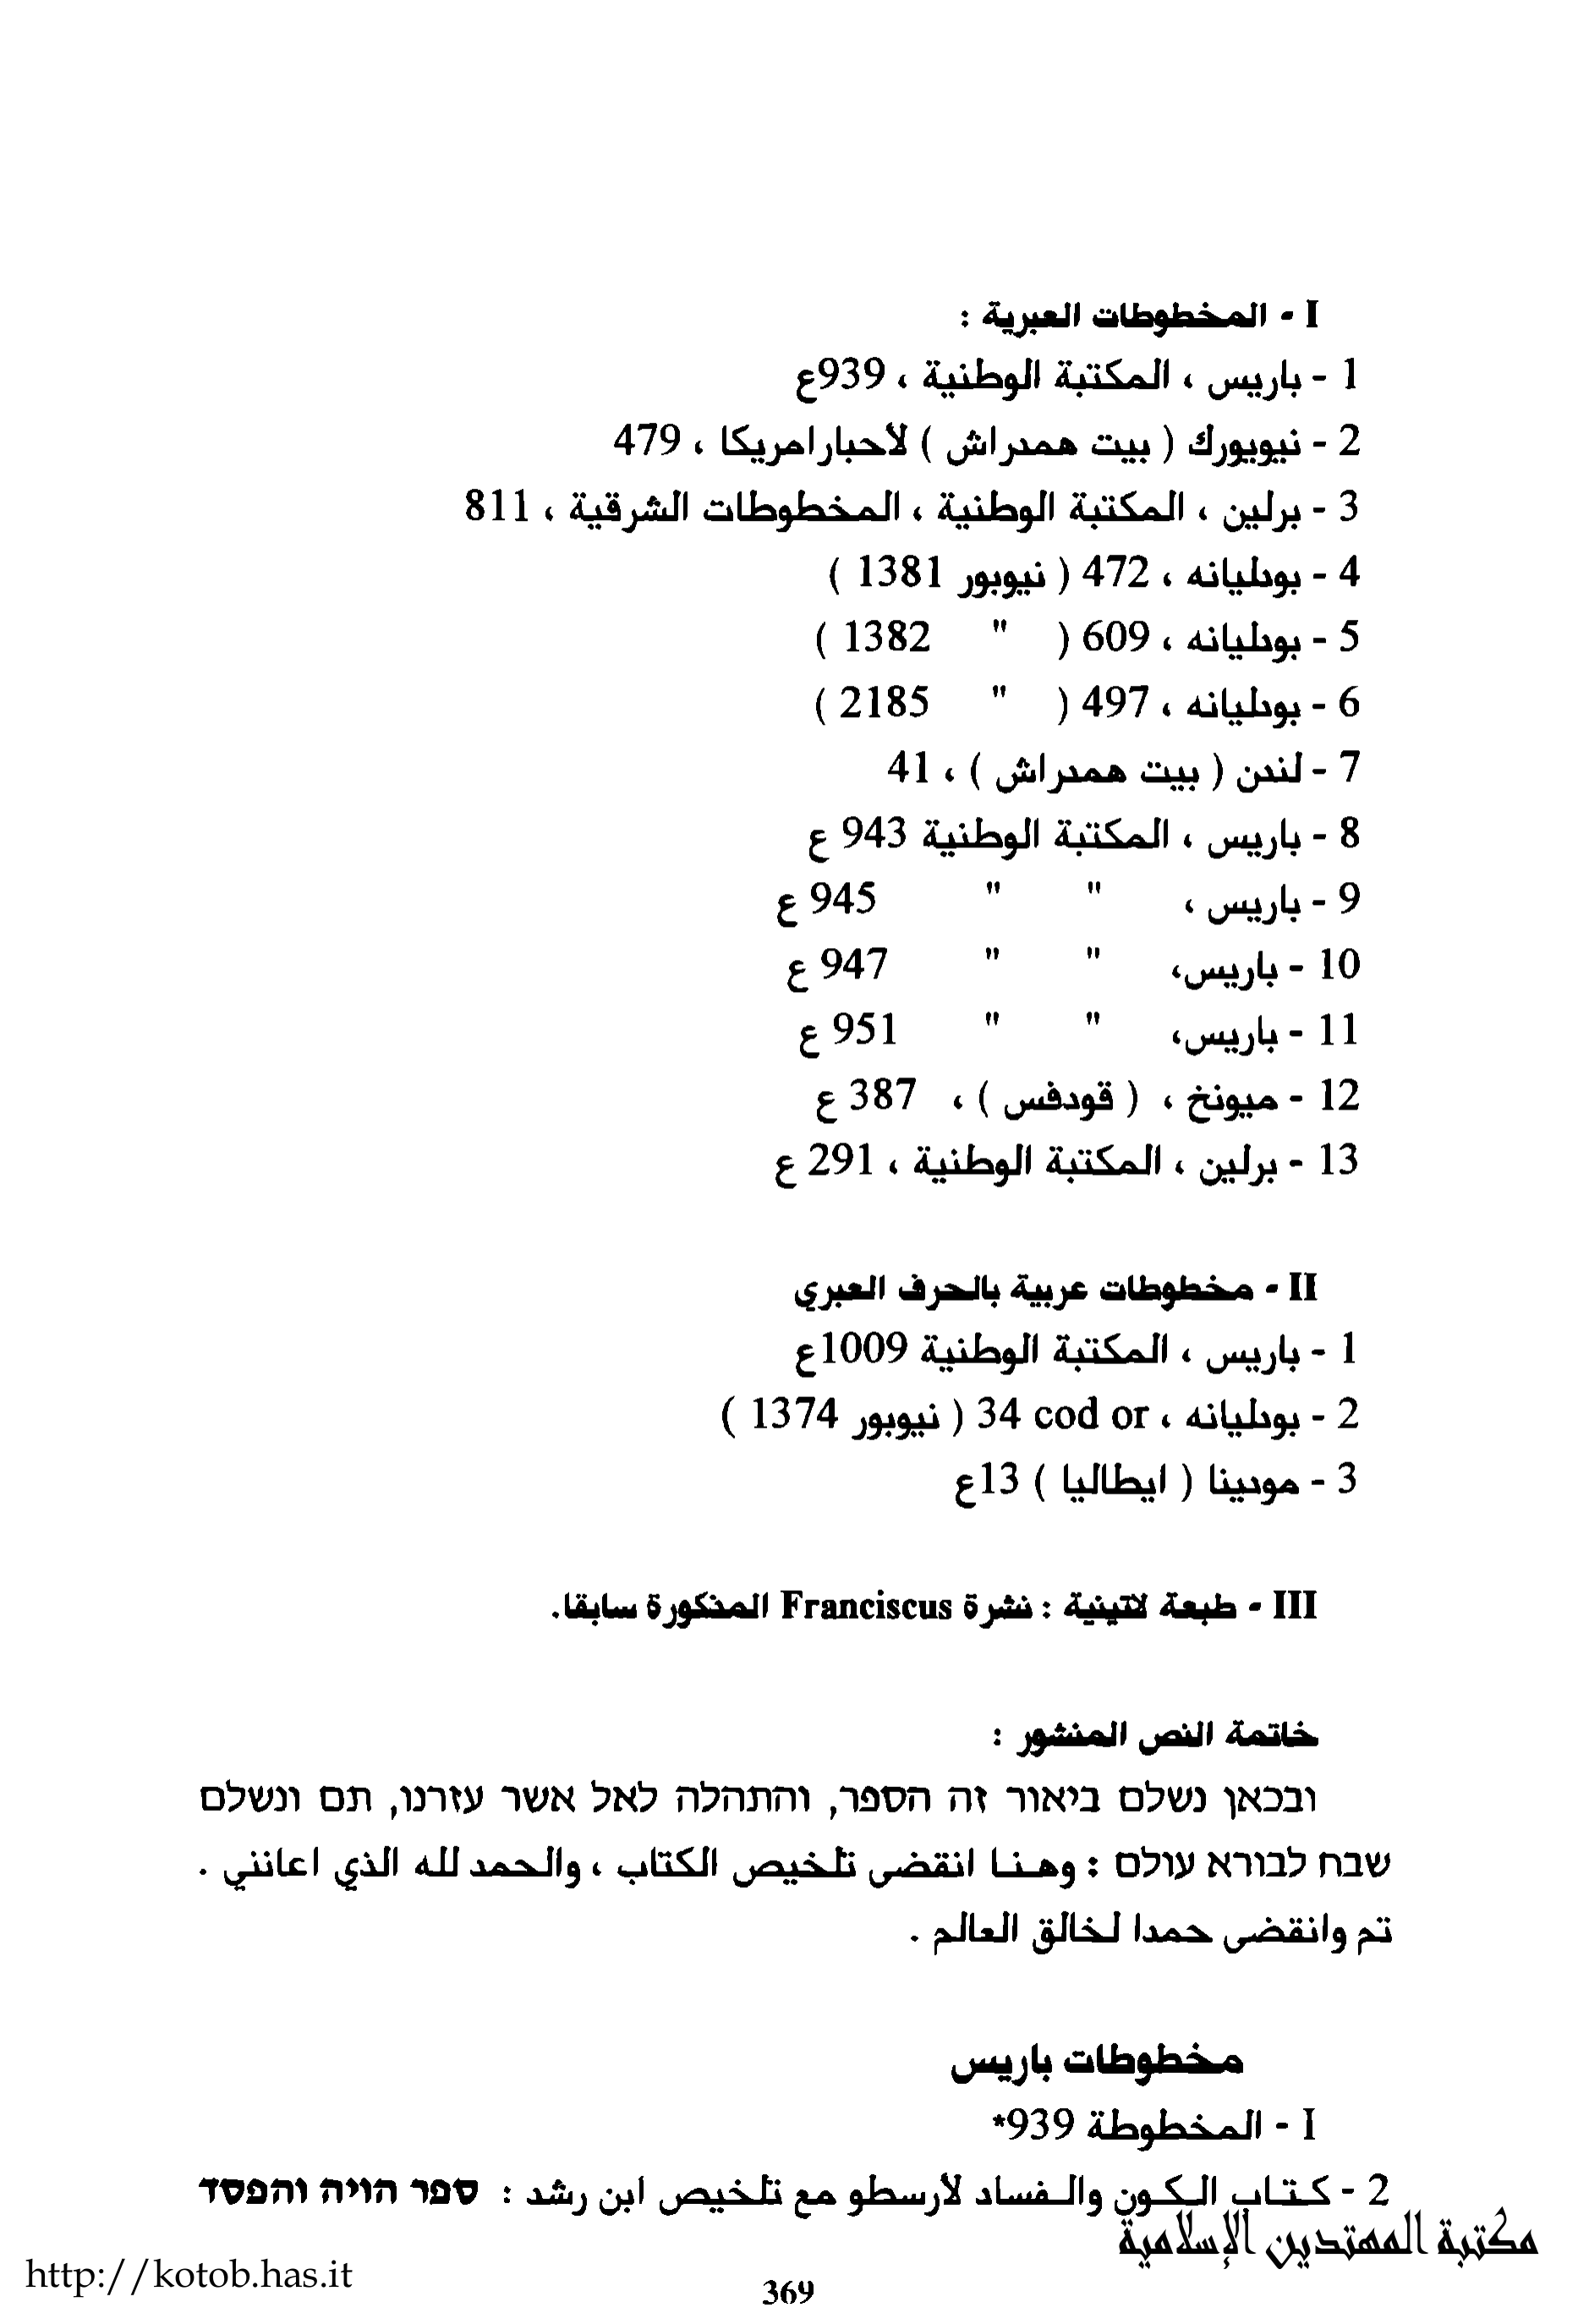 I - المخطوطات العبرية :
1 - باريس ، المكتبة الوطنية ، 939ع
2 - نيويورك ( بيت همدراش ) لأحبار امريكا ، 479
3 - برلين ، المكتبة الوطنية ، المخطوطات الشرقية ، 811
4 - بودليانه ، 472 ( نيوبور 1381 )
5 - بودليانه ، 609 ( " 1382 )
6 - بودليانه ، 497 ( " 2185 )
7 - لندن ( بيت همدراش ) ، 41
8 - باريس ، المكتبة الوطنية 943 ع
9 - باريس ، " " 945 ع
10 - باريس، " " 947 ع
11 - باريس، " " 951 ع
12 - ميونخ ، ( قودفس ) ، 387 ع
13 - برلين ، المكتبة الوطنية ، 291 ع
II - مخطوطات عربية بالحرف العبري
1 - باريس ، المكتبة الوطنية 1009ع
2 - بودليانه ، 34 cod or ( نيوبور 1374 )
3 - مودينا ( ايطاليا ) 13ع
III - طبعة لاتينية : نشرة Franciscus المذكورة سابقا.
خاتمة النص المنشور :
ובכאן נשלם ביאור זה הספר, והתהלה לאל אשר עזרנו, תם ונשלם
שבח לבורא עולם : وهنا انقضى تلخيص الكتاب ، والحمد لله الذي اعانني .
تم وانقضى حمدا لخالق العالم .
مخطوطات باريس
I - المخطوطة 939*
2 - كتاب الكون والفساد لارسطو مع تلخيص ابن رشد : ספר הויה והפסד
مكتبة المهتدين الإسلامية
http://kotob.has.it
369